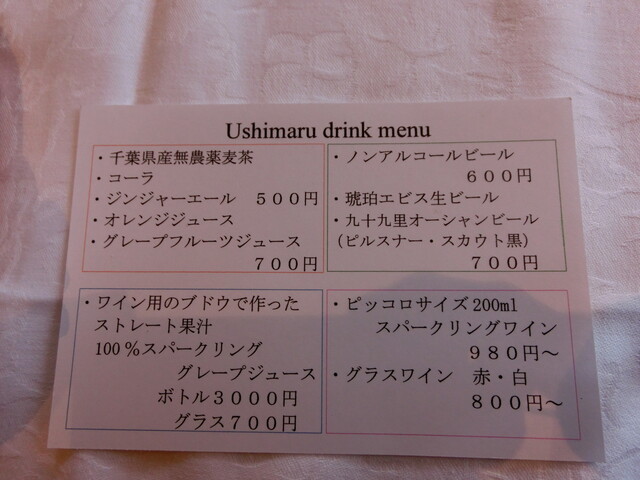 Ushimaru drink menu
・千葉県産無農薬麦茶
・コーラ
・ジンジャーエール ５００円
・オレンジジュース
・グレープフルーツジュース
７００円
・ノンアルコールビール
６００円
・琥珀エビス生ビール
・九十九里オーシャンビール
（ピルスナー・スカウト黒）
７００円
・ワイン用のブドウで作った
ストレート果汁
100％スパークリング
グレープジュース
ボトル３０００円
グラス７００円
・ピッコロサイズ200ml
スパークリングワイン
９８０円～
・グラスワイン 赤・白
８００円～